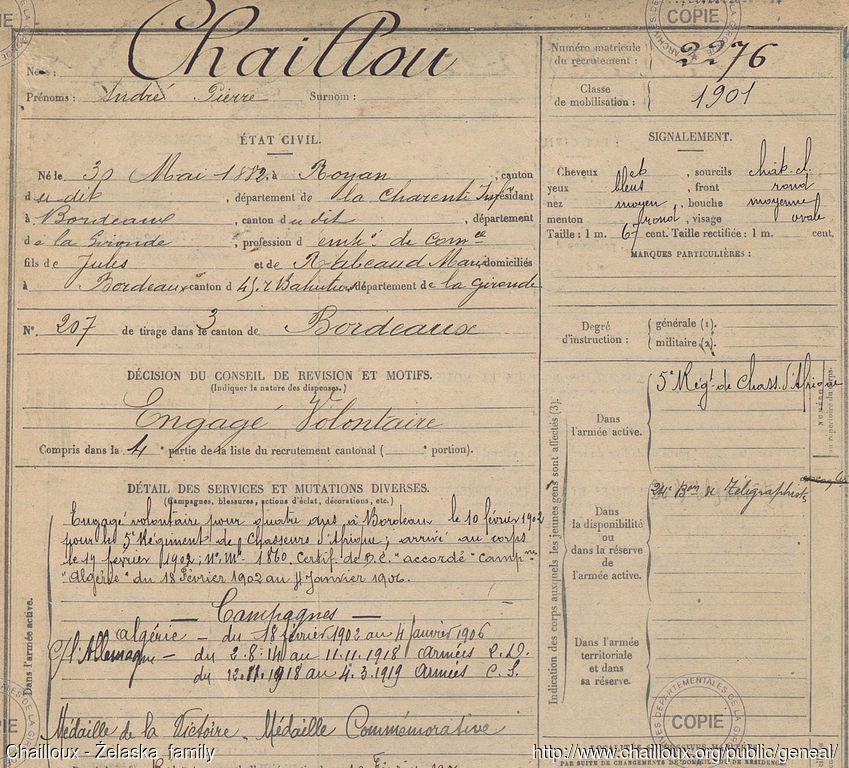 Chaillou
Prénoms : André Pierre Surnom :
Numéro matricule du recrutement : 2276
Classe de mobilisation : 1901
ÉTAT CIVIL.
Né le 30 Mai 1882, à Royan, canton
du dit, département de la Charente Infre, résidant
à Bordeaux, canton du dit, département
de la Gironde, profession d emp. de comce
fils de Jules et de Rabeaud Marie domiciliés
à Bordeaux canton d département de la Gironde
N° 207 de tirage dans le 3 canton de Bordeaux
SIGNALEMENT.
Cheveux , sourcils chât. cl.
yeux bleus, front rond
nez moyen, bouche moyenne
menton rond, visage ovale
Taille : 1 m. 67 cent. Taille rectifiée : 1 m. cent.
MARQUES PARTICULIÈRES :
Degré d'instruction : générale (1).
militaire (2).
DÉCISION DU CONSEIL DE REVISION ET MOTIFS.
(Indiquer la nature des dispenses.)
Engagé Volontaire
Compris dans la 4e partie de la liste du recrutement cantonal ( e portion).
DÉTAIL DES SERVICES ET MUTATIONS DIVERSES.
(Campagnes, blessures, actions d'éclat, décorations, etc.)
Dans l'armée active.
Engagé volontaire pour quatre ans à Bordeaux le 10 février 1902
pour le 5e Régiment de Chasseurs d'Afrique; arrivé au corps
le février 1902; N° Mle 1860. Certif. de B.C. "accordé" Campnes
"Algérie" du 18 Février 1902 au 4 Janvier 1906.
Campagnes
Algérie – du 18 février 1902 au 4 janvier 1906
C/ l'Allemagne – du 2.8.14 au 11.11.1918 Armées
du 12.11.1918 au 4.3.1919 Armées C.S.
Médaille de la Victoire. Médaille Commémorative
Indication des corps auxquels les jeunes gens sont affectés (3).
Dans l'armée active.
5e Régt de Chass. d'Afrique
Dans la disponibilité ou dans la réserve de l'armée active.
24e Bon de Télégraphistes
Dans l'armée territoriale et dans sa réserve.
NUMÉRO
au répertoire du corps.
PAR SUITE DE CHANGEMENTS DE DOMICILE OU DE RÉSIDENCE
COPIE
COPIE
COPIE
Chailloux - Želaska family
http://www.chailloux.org/public/geneal/